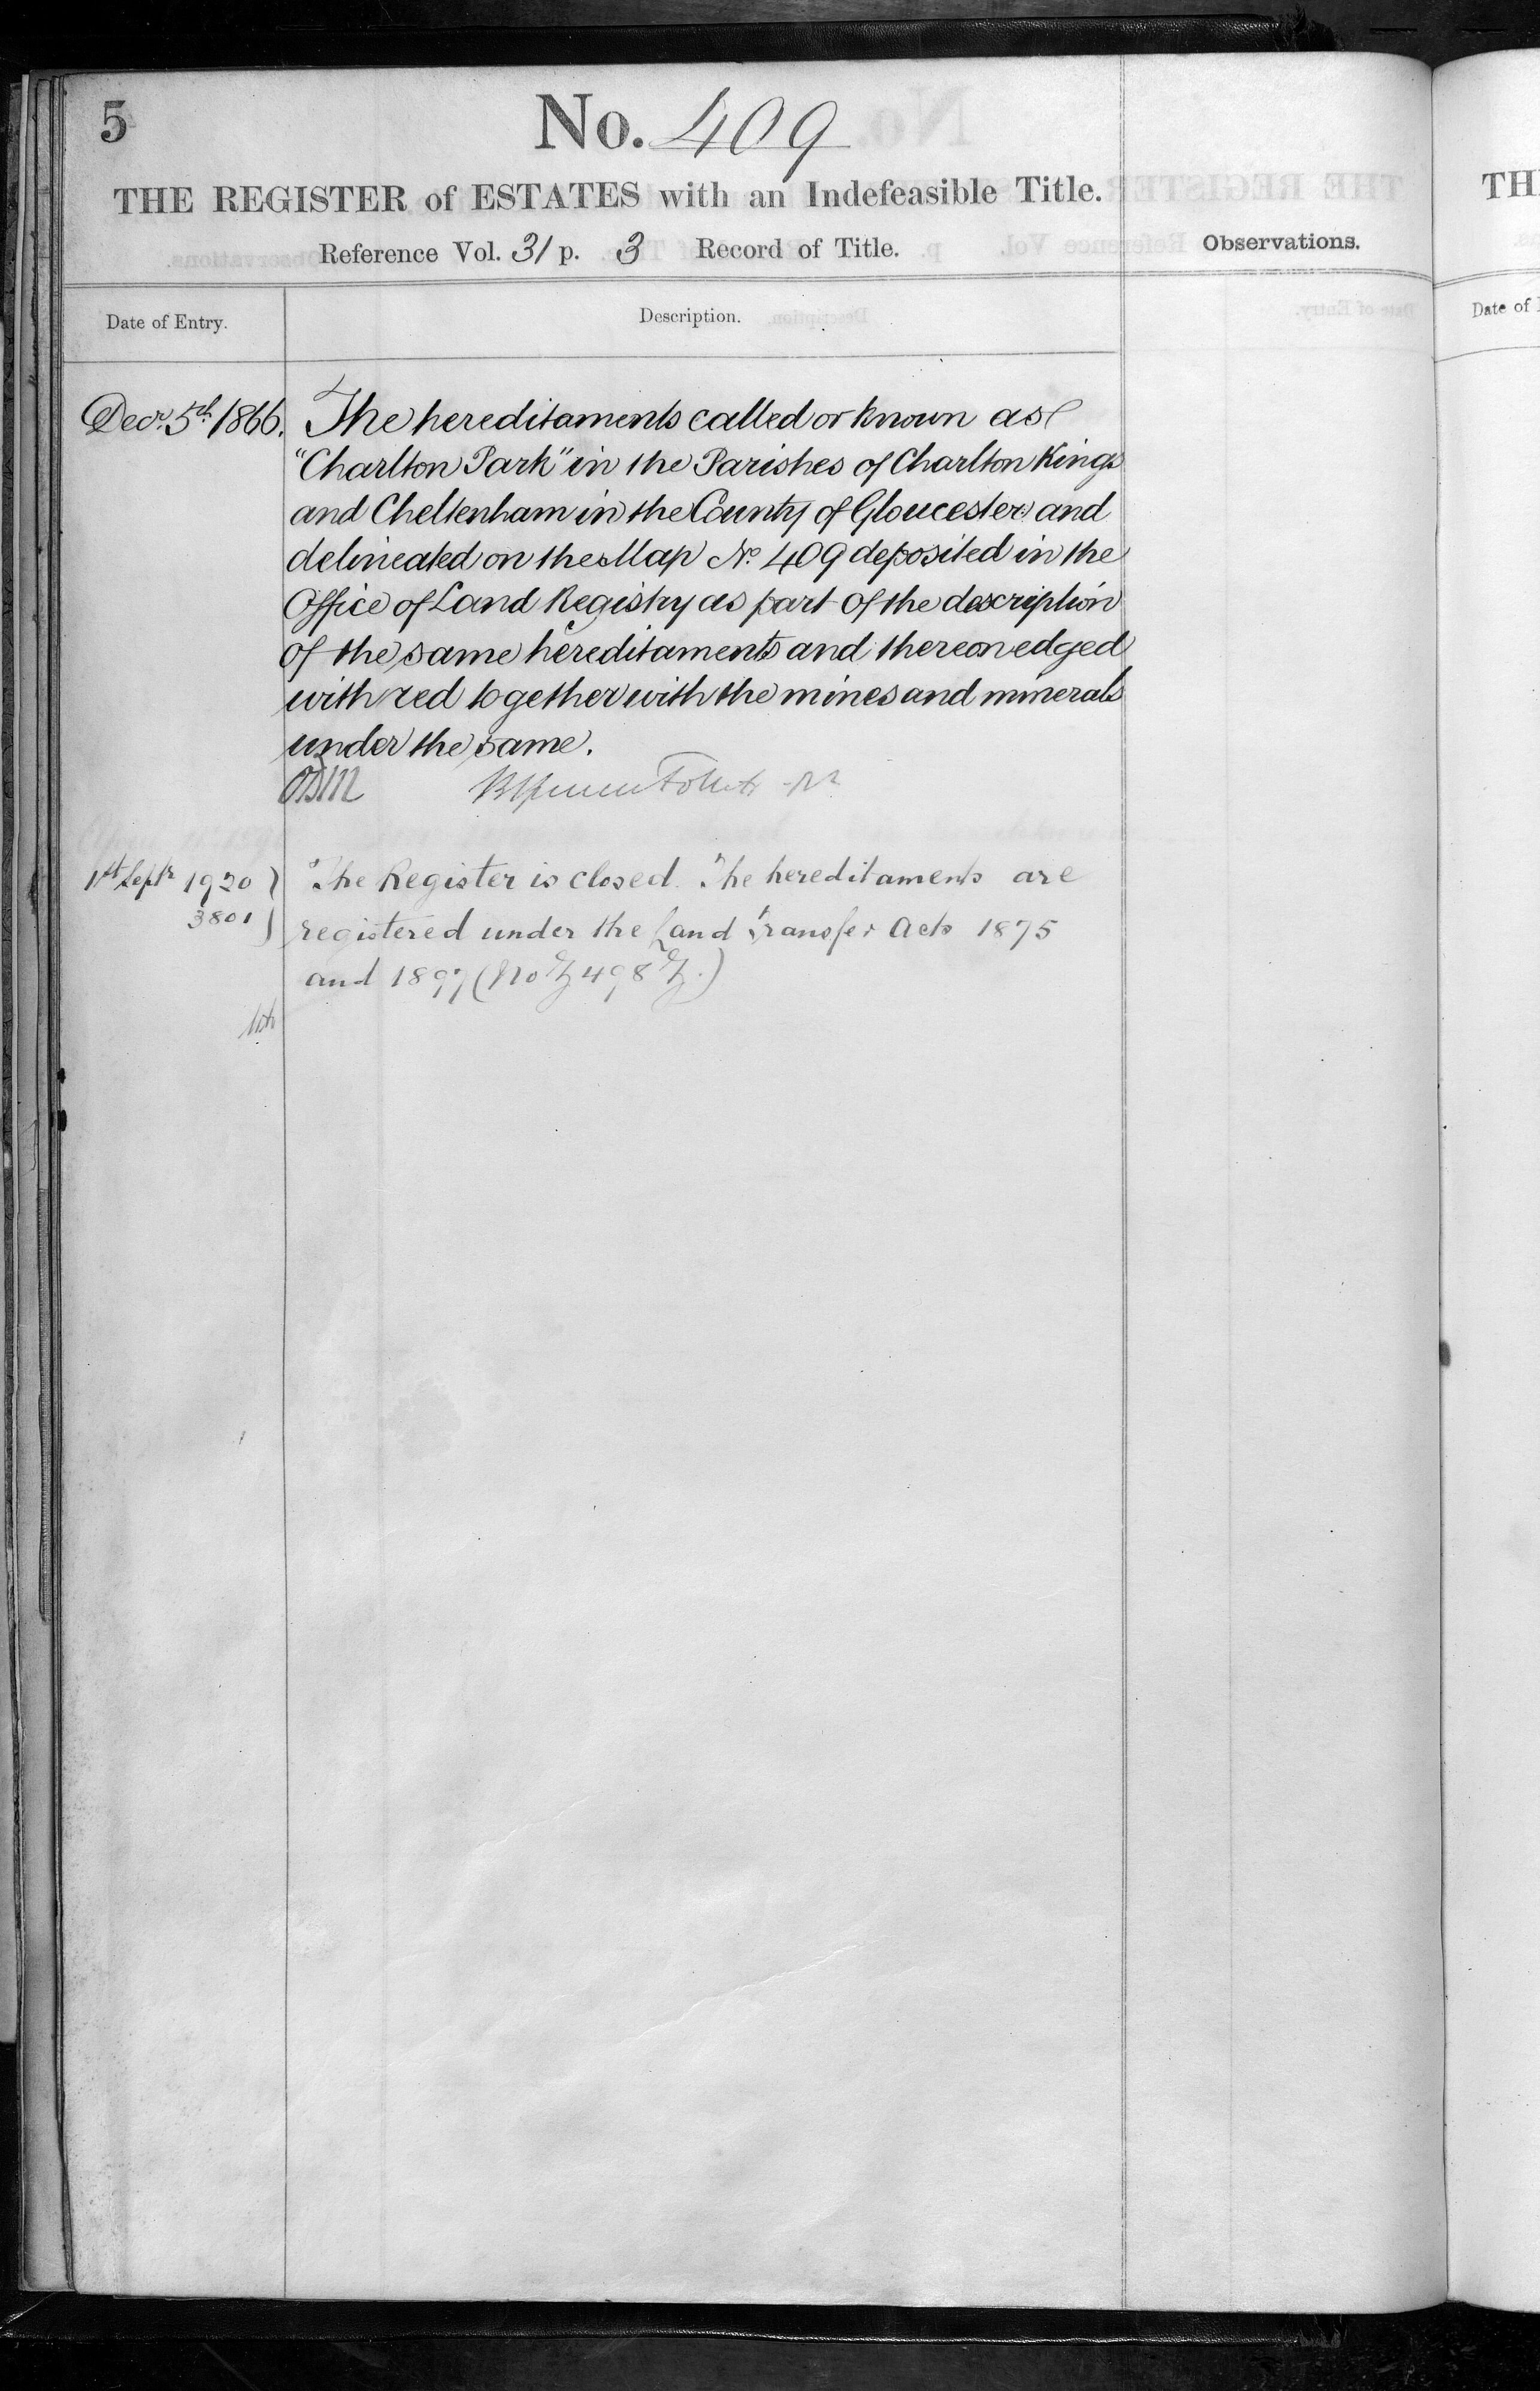 5
No. 409
THE REGISTER of ESTATES with an Indefeasible Title.
Reference Vol. 31 p. 3 Record of Title.
Observations.
Date of Entry.
Description.
Decr. 5th 1866.
The hereditaments called or known as
"Charlton Park" in the Parishes of Charlton Kings
and Cheltenham in the County of Gloucester and
delineated on the Map No. 409 deposited in the
Office of Land Registry as part of the description
of the same hereditaments and thereon edged
with red together with the mines and minerals
under the same.
1st Septr 1920
3801
The Register is closed. The hereditaments are
registered under the Land Transfer Acts 1875
and 1897 (No 498
TH
Date of